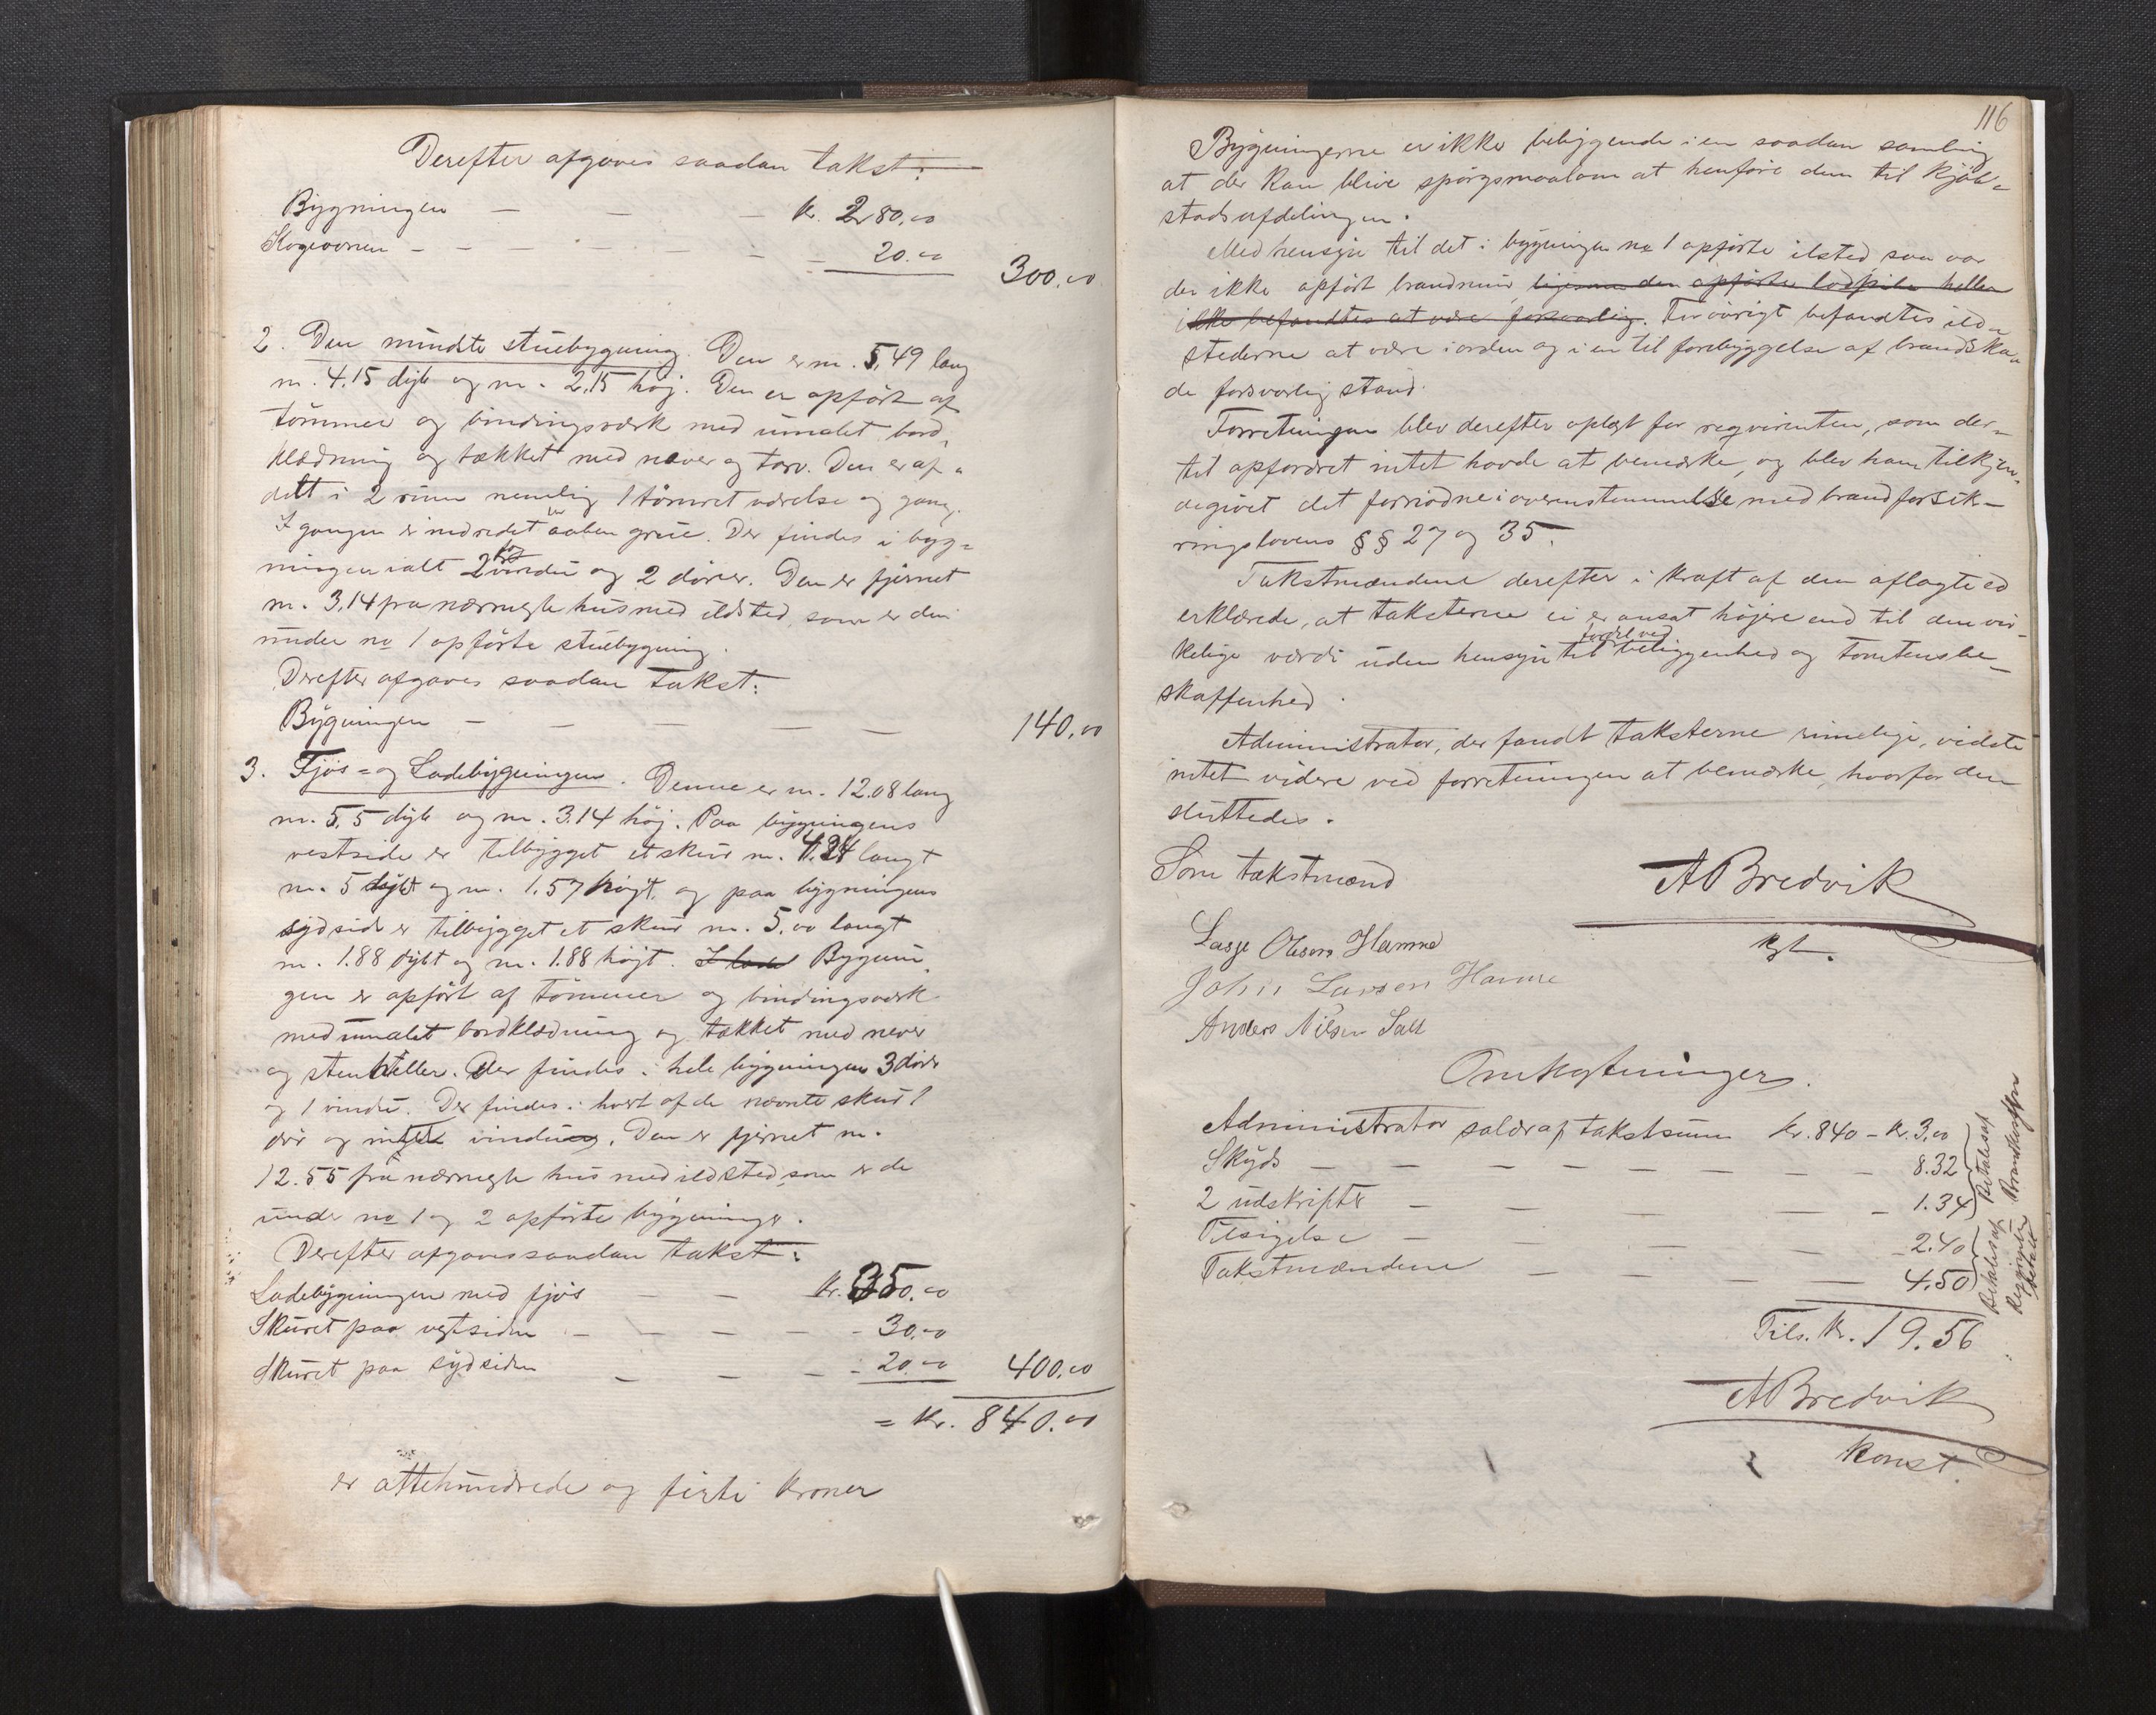 Derefter afgaves saadan takst:
Bygningen — — — kr. 280.00
Kogeovnen — — — — — 20.00
300.00
2. Den mindste stuebygning. Den er m. 5,49 lang
m. 4.15 dyb og m. 2.15 høj. Den er opført af
tømmer og bindingsværk med umalet bord-
klædning og tækket med næver og torv. Den er af-
delt i 2 rum nemlig 1 tømret værelse og gang.
I gangen er indredet aaben grue. Der findes i byg-
ningen ialt 2 fag vindu og 2 dører. Den er fjernet
m. 3,14 fra nærmeste hus med ildsted, som er den
under no 1 opførte stuebygning.
Derefter afgaves saadan takst:
Bygningen — — — — — 140.00
3. Fjøs- og Ladebygningen. Denne er m. 12.08 lang
m. 5,5 dyb og m. 3.14 høj. Paa bygningens
vestside er tilbygget et skur m. 4.24 langt
m. 5 dybt og m. 1.57 højt, og paa bygningens
sydside er tilbygget et skur m. 5.00 langt
m. 1.88 dybt og m. 1.88 højt. I lade Bygnin-
gen er opført af tømmer og bindingsværk
med umalet bordklædning og tækket med never
og stenheller. Der findes i hele bygningen 3 dører
og 1 vindu. Der findes i hvert af de nævnte skur 1
dør og intet vindu. Den er fjernet m.
12.55 fra nærmeste hus med ildsted, som er de
under no 1 og 2 opførte bygninger.
Derefter afgaves saadan takst:
Ladebygningen med fjøs — — kr. 350.00
Skuret paa vestsiden — — — — 30.00
Skuret paa sydsiden — — — — 20.00 400.00
= kr. 840.00
er ottehundrede og firti kroner
116
Bygningerne er ikke beliggende i en saadan samling
at der kan blive spørgsmaal om at henføre dem til kjøb-
stadsafdelingen.
Med hensyn til det i bygningen no 1 opførte ilsted saa var
der ikke opført brandmur, ligesom den opførte heller
ikke befandtes at være forsvarlig. Forøvrigt befandtes ild-
stederne at være i orden og i en til forebyggelse af brandska-
de forsvarlig stand.
Forretningen blev derefter oplæst for reqvirenten, som der-
til opfordret intet havde at bemærke, og blev ham tilkjen-
degivet det fornødne i overensstemmelse med brandforsik-
ringslovens §§ 27 og 35.
Takstmændene derefter i kraft af den aflagte ed
erklærede, at taksterne ei er ansat højere end til den vir-
kelige værdi uden hensyn til fordel ved beliggenhed og tomtens be-
skaffenhed.
Administrator, der fandt taksterne rimelige, vidste
intet videre ved forretningen at bemærke, hvorfor den
sluttedes.
Som takstmænd
A Bredvik
kst.
Lasse Olsen Hamre
John Larsen Hamre
Anders Nilsen
Omkostninger.
Administrator salær af takstsum kr. 840 – kr. 3.00
Skyds — — — — — — — 8.32
2 udskrifter — — — — — 1.34
Tilsigelse — — — — — 2.40
Takstmændene — — — — 4.50
Betales af Brandkassen
Betales af
betalt
Tils. kr. 19.56
A Bredvik
konst.